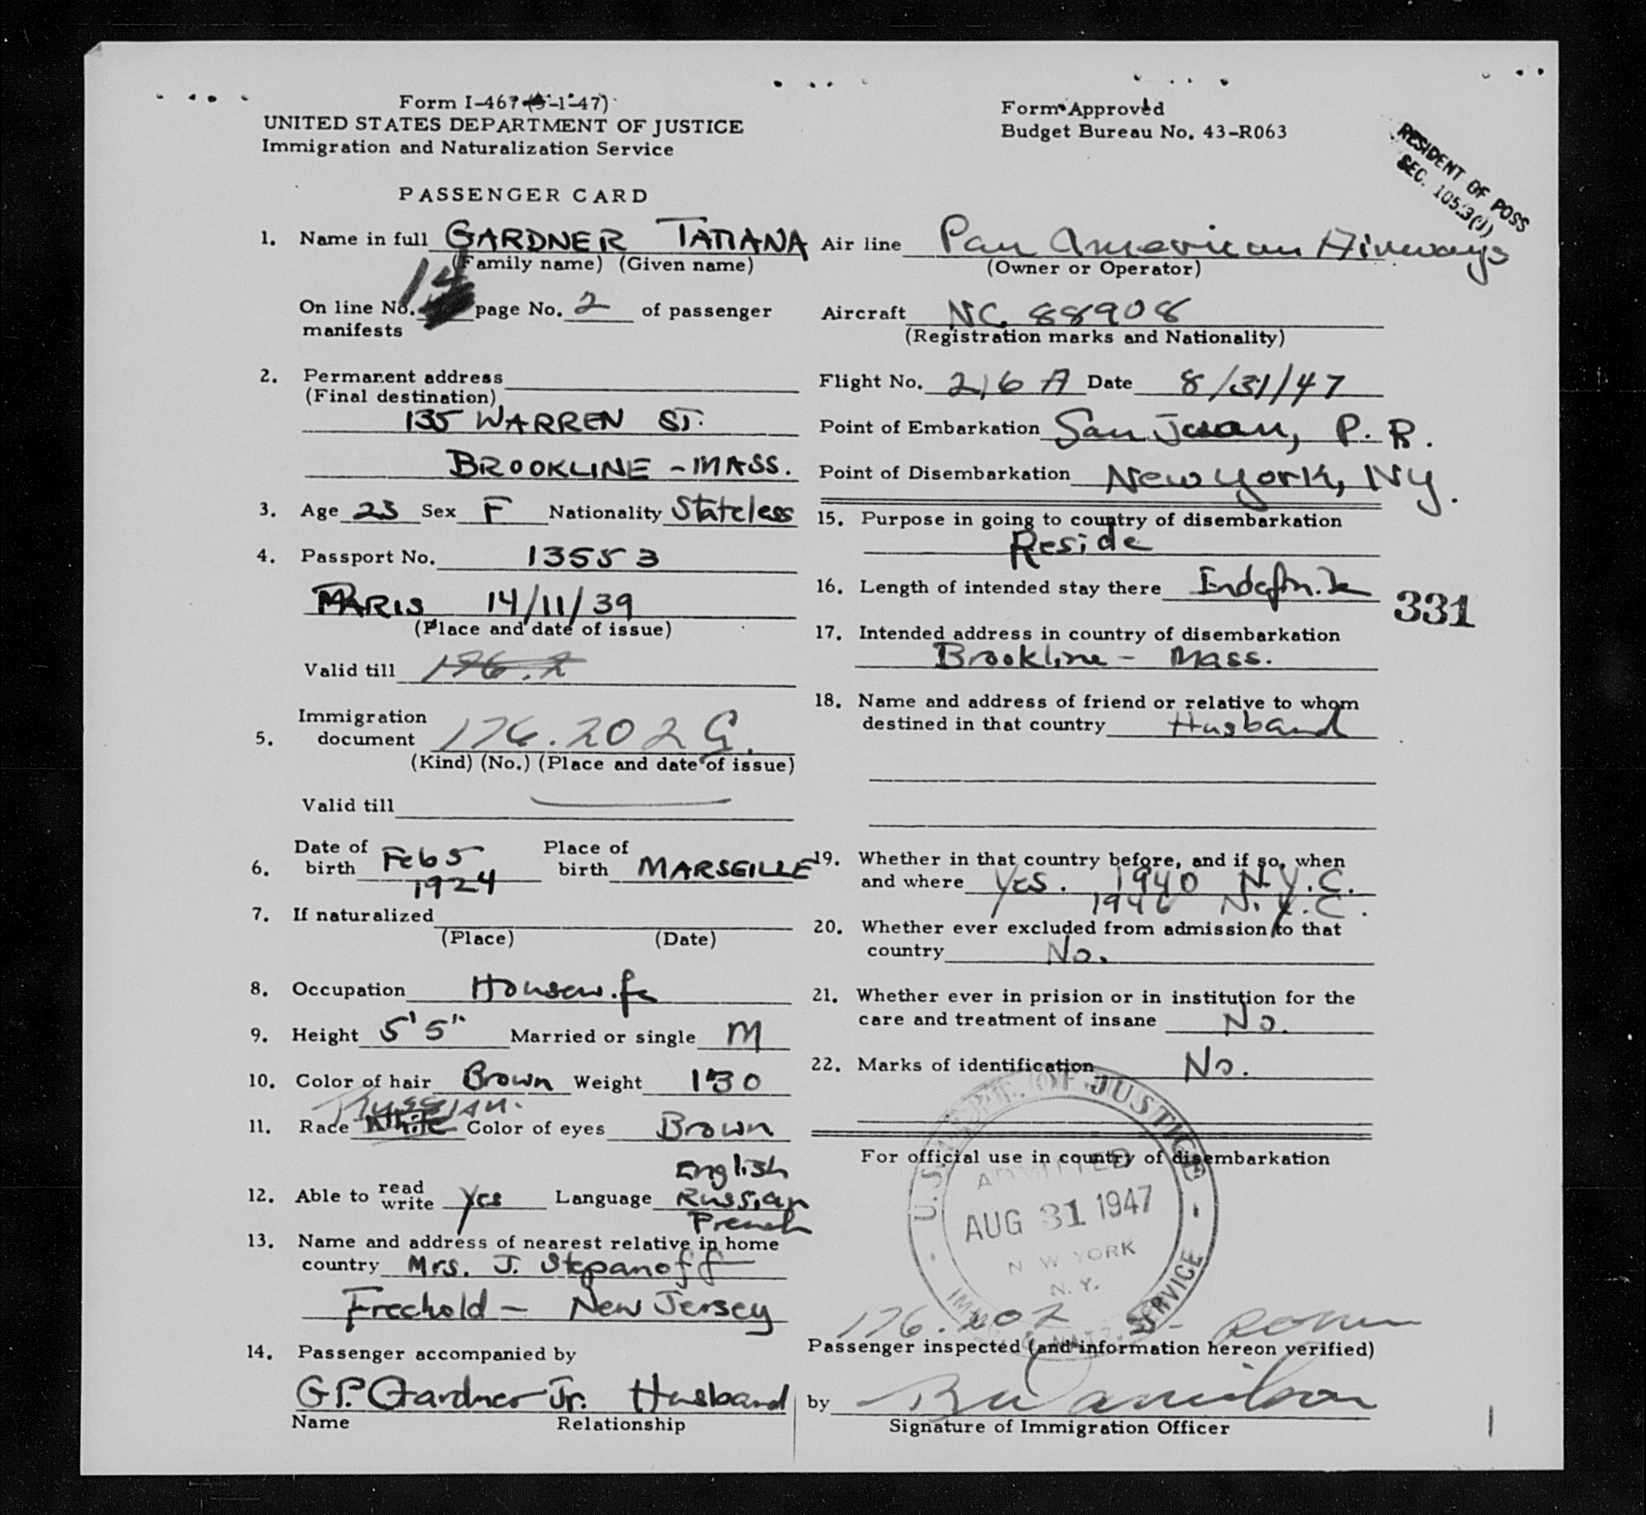 Form I-467 (5-1-47)
UNITED STATES DEPARTMENT OF JUSTICE
Immigration and Naturalization Service
PASSENGER CARD
1. Name in full GARDNER TATIANA
(Family name) (Given name)
On line No. 14 page No. 2 of passenger
manifests
2. Permanent address
(Final destination)
135 WARREN ST.
BROOKLINE - MASS.
3. Age 23 Sex F Nationality Stateless
4. Passport No. 13553
PARIS 14/11/39
(Place and date of issue)
Valid till 176.2
Immigration
5. document 176.202 G.
(Kind) (No.) (Place and date of issue)
Valid till
6. Date of birth Feb 5 1924 Place of birth MARSEILLE
7. If naturalized
(Place) (Date)
8. Occupation Housewife
9. Height 5'5" Married or single M
10. Color of hair Brown Weight 130
Russian.
11. Race White Color of eyes Brown
English
12. Able to read write yes Language Russian
French
13. Name and address of nearest relative in home
country Mrs. J. Stepanoff
Freehold - New Jersey
14. Passenger accompanied by
G.P. Gardner Jr. Husband
Name Relationship
Form Approved
Budget Bureau No. 43-R063
RESIDENT OF POSS
SEC. 105.3(J)
Air line Pan American Airways
(Owner or Operator)
Aircraft NC 88908
(Registration marks and Nationality)
Flight No. 216 A Date 8/31/47
Point of Embarkation San Juan, P.R.
Point of Disembarkation New York, NY.
15. Purpose in going to country of disembarkation
Reside
16. Length of intended stay there Indefinite
331
17. Intended address in country of disembarkation
Brookline - Mass.
18. Name and address of friend or relative to whom
destined in that country Husband
19. Whether in that country before, and if so, when
and where Yes. 1940 N.Y.C.
1946 N.Y.C.
20. Whether ever excluded from admission to that
country No.
21. Whether ever in prision or in institution for the
care and treatment of insane No.
22. Marks of identification No.
For official use in country of disembarkation
U.S. DEPT. OF JUSTICE
ADMITTED
AUG 31 1947
NEW YORK
N.Y.
SERVICE
176.202
Passenger inspected (and information hereon verified)
by
Signature of Immigration Officer